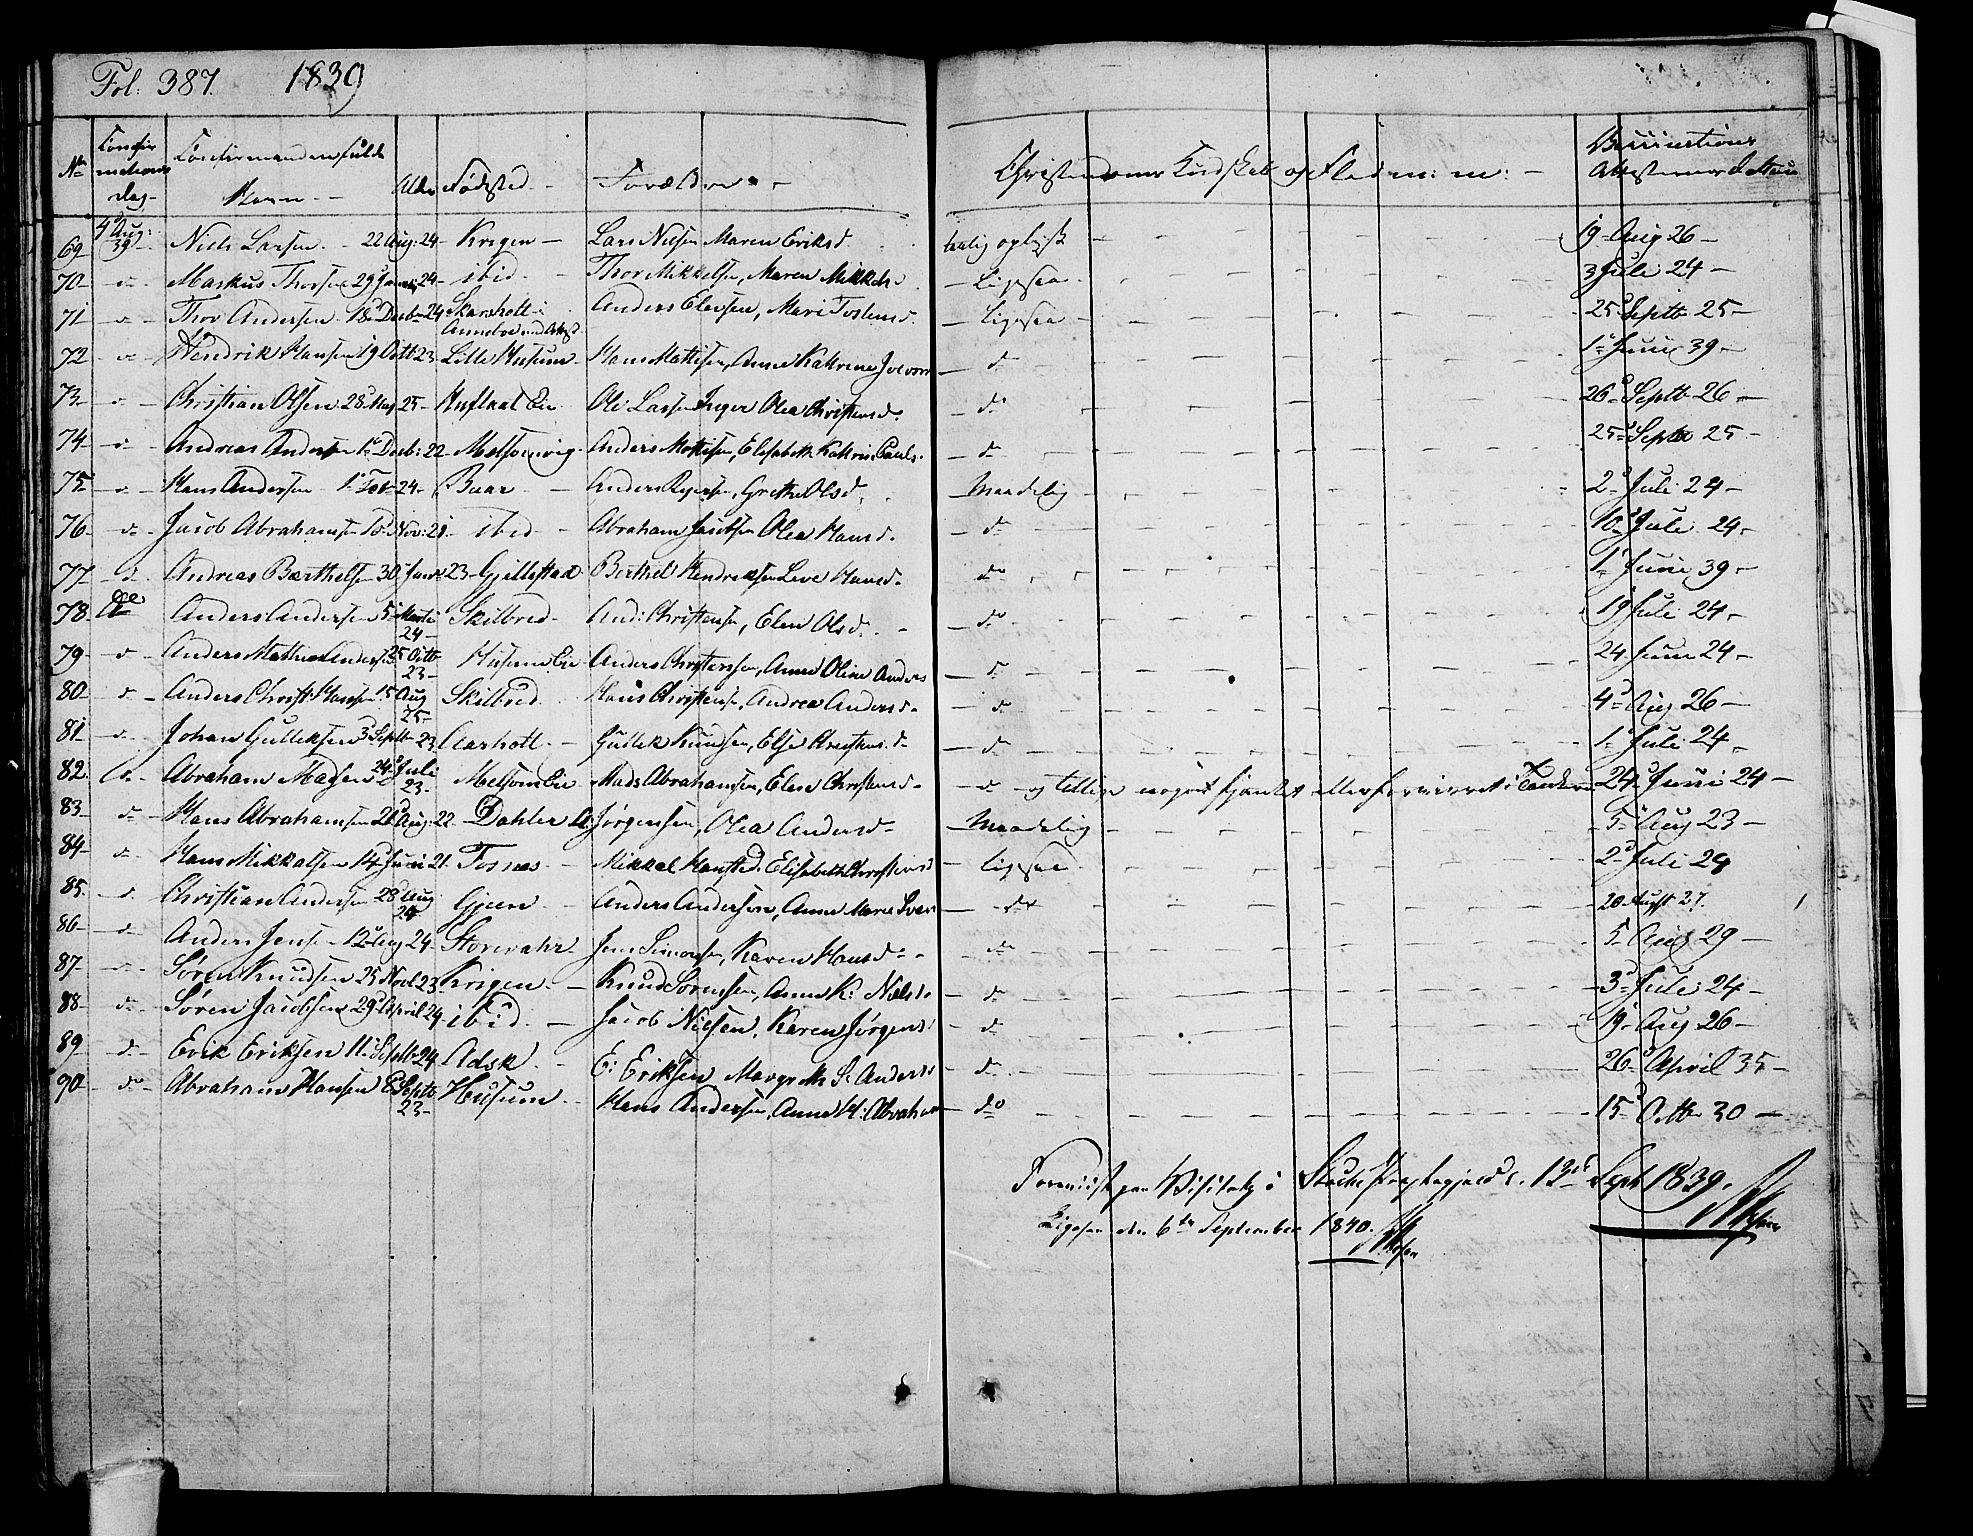 Fol: 387. 1839
No Confirmations Dag. Confirmandens fulde Navn. Alder Fødested. Forældre. Christendoms Kundskab og Flid m: m: Vaccinations Attesternes Datum
69 4d Aug: 39 Niels Larsen. 22 Aug: 24 Krogen Lars Nielsen Maren Eriksd. taalig oplyst 19 Aug 26
70 d Markus Thorsen 29 Januar 24 ibid. Thor Mikkelsen, Maren Mikkels. Ligesaa 3 Juli 24
71 d Thor Andersen 18 Decb 24 Skarsholt i Anneboe med Attest Anders Elensen, Mari Tostensd. Ligesaa 25 Septb 25
72 d Hendrik Hansen 19 Octb 23 Lille Husum Hans Mathisen, Anne Kathrine d 1 Juni 39
73 d Christian Olsen 28 May 25 Eie Ole Larsen Inger Olea Christensd. d. 26 Septb 26
74 d Andreas Andersen 1 Decb: 22 Melsomvig Anders Mathisen, Elisabeth Kathrine Pauls. d 25 Septb 25
75 d Hans Andersen 1 Feb 24 Baar Anders Grethe Olsd. Maadelig 2 Juli 24
76 d Jacob Abrahamsen 10 Nov: 21 ibid Abraham Jacobsen Olea Hansd. d 10 Juli 24
77 d Andreas Barthelsen 30 Janr 23 Gjellestad Berthel Hendriksen Live Hansd. do 1 Juni 39
78 Anders Andersen 5 Marti 24 Skilbred And: Christensen, Elen Olsd. do 19 Juli 24
79 d Anders Mathias Andersen 25 Octb 23 Husum Eie Anders Christensen, Anne Oline Anders d 24 Juni 24
80 d Anders Christ: Hansen 15 Aug 25 Skilbred Hans Christensen, Andrea Andersd. d 4 Aug 26
81 d Johan Gulleksen 3 Septb 23 Aarholt Gullek Knudsen, Else Christensd. d 1 Juli 24
82 d Abraham Madsen 24 Juli 23 Melsom Eie Mads Abrahamsen, Elen Christensd. d og tillige noget eller forvirret i Tanker 24 Juni 24
83 d Hans Abrahamsen 26 Aug: 22 Dahler A Jørgensen, Olea Andersd Maadelig 5 Aug 23
84 d Hans Mikkalsen 14 Juni 21 Fosnæs Mikkel Hansted. Elisabeth Christensd Ligesaa 2 Juli 24
85 d Christian Andersen 28 Aug 24 Gjeen Anders Andersen, Anne Marie do 20 Augst 27.
86 d Anders Jensen 12 Aug 24 Storevahr Jens Simonsen, Karen Hansd. do 5 Aug 29
87 d Søren Knudsen 25 Novb 23 Krogen Knud Sørensen, Anne K: Nielsd. d 3 Juli 24
88 d Søren Jacobsen 29 April 24 ibid. Jacob Nielsen, Karen Jørgens d 19 Aug 26
89 d Erik Eriksen 11 Septb 24 Adsk. E: Eriksen Margreth S: Anders d 26 April 35
90 do Abraham Hansen 8 Septb 23 Husum Hans Andersen, Anne H: Abraham do 15 Octb 30
Foreviist paa Visitats i Stokke Præstegjeld d. 13de Sept 1839.
Ligesaa den 6te September 1840.